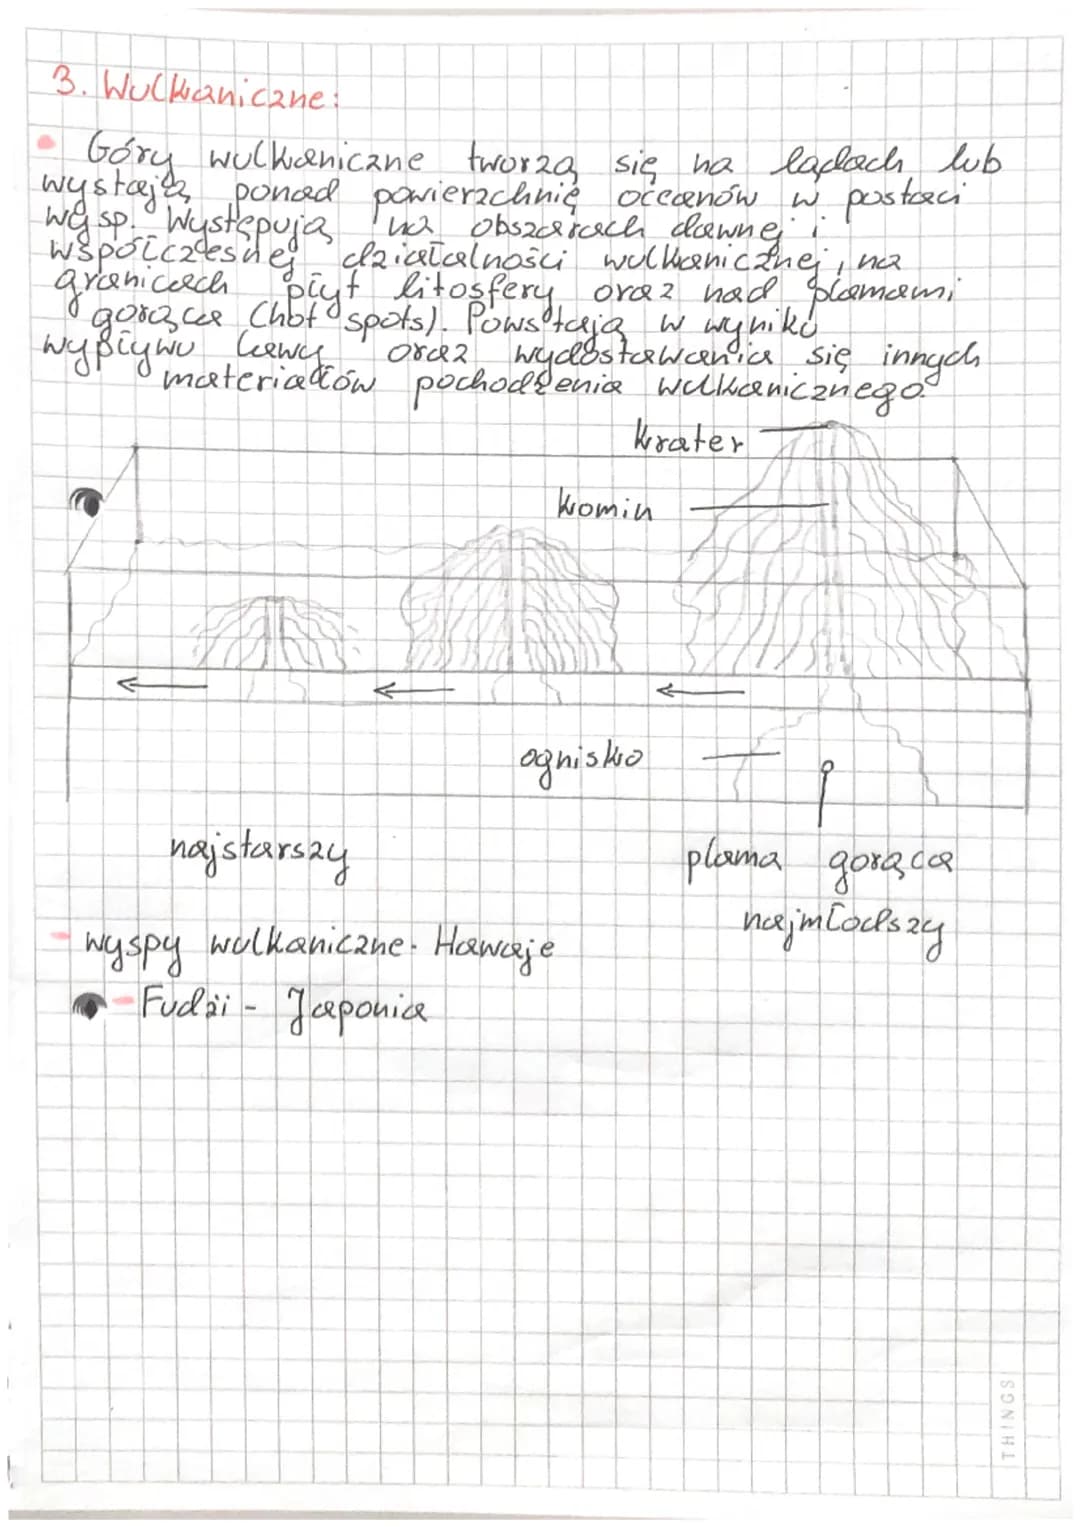 3. Wulkaniczne:
Góry wulkaniczne tworzą się na lądach lub
wystają ponad powierzchnię oceanów w postaci
wysp. Występują na obszarach dawnej i
współczesnej działalności wulkanicznej, na
granicach płyt litosfery oraz nad plamami
gorąca (hot spots). Powstają w wyniku
wypływu lawy oraz wydostawania się innych
materiałów pochodzenia wulkanicznego.
krater
komin
ognisko
najstarszy
plama gorąca
najmłodszy
- wyspy wulkaniczne - Hawaje
- Fudżi - Japonia
THINGS